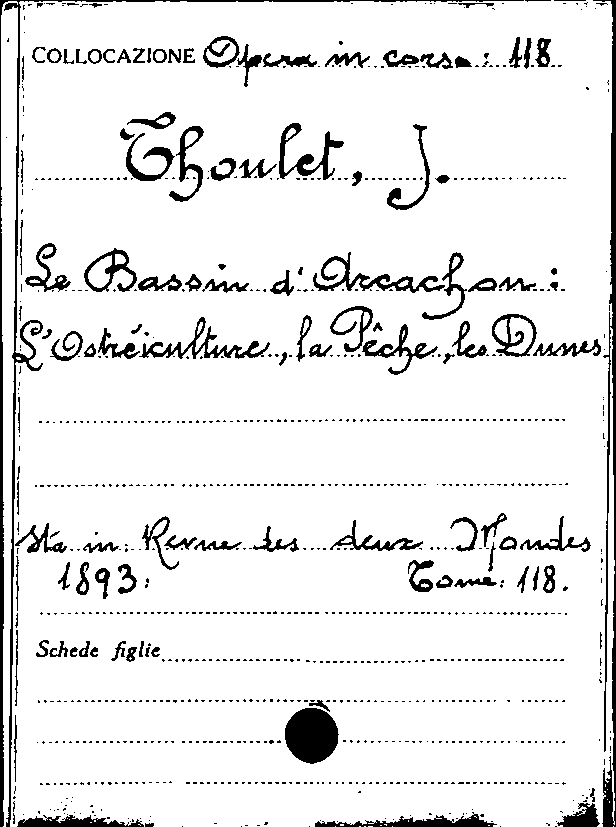 COLLOCAZIONE Opera in corso: 118
Thoulet, J.
Le Bassin d'Arcachon:
L'Ostréiculture, la Pêche, les Dunes
Sta in: Revue des deux Mondes
1893: Tome: 118.
Schede figlie